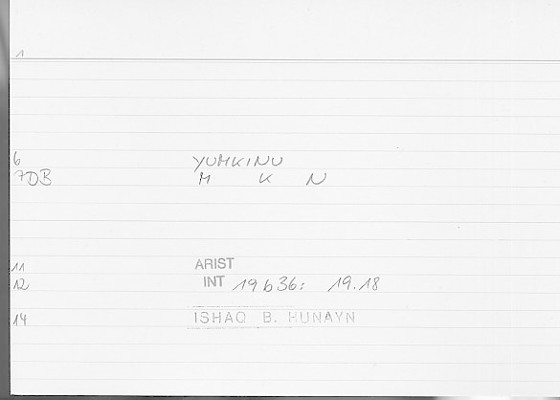 1
6 YUMKINU
7DB M K N
11 ARIST
12 INT 19b36: 19.18
14 ISHAQ B. HUNAYN